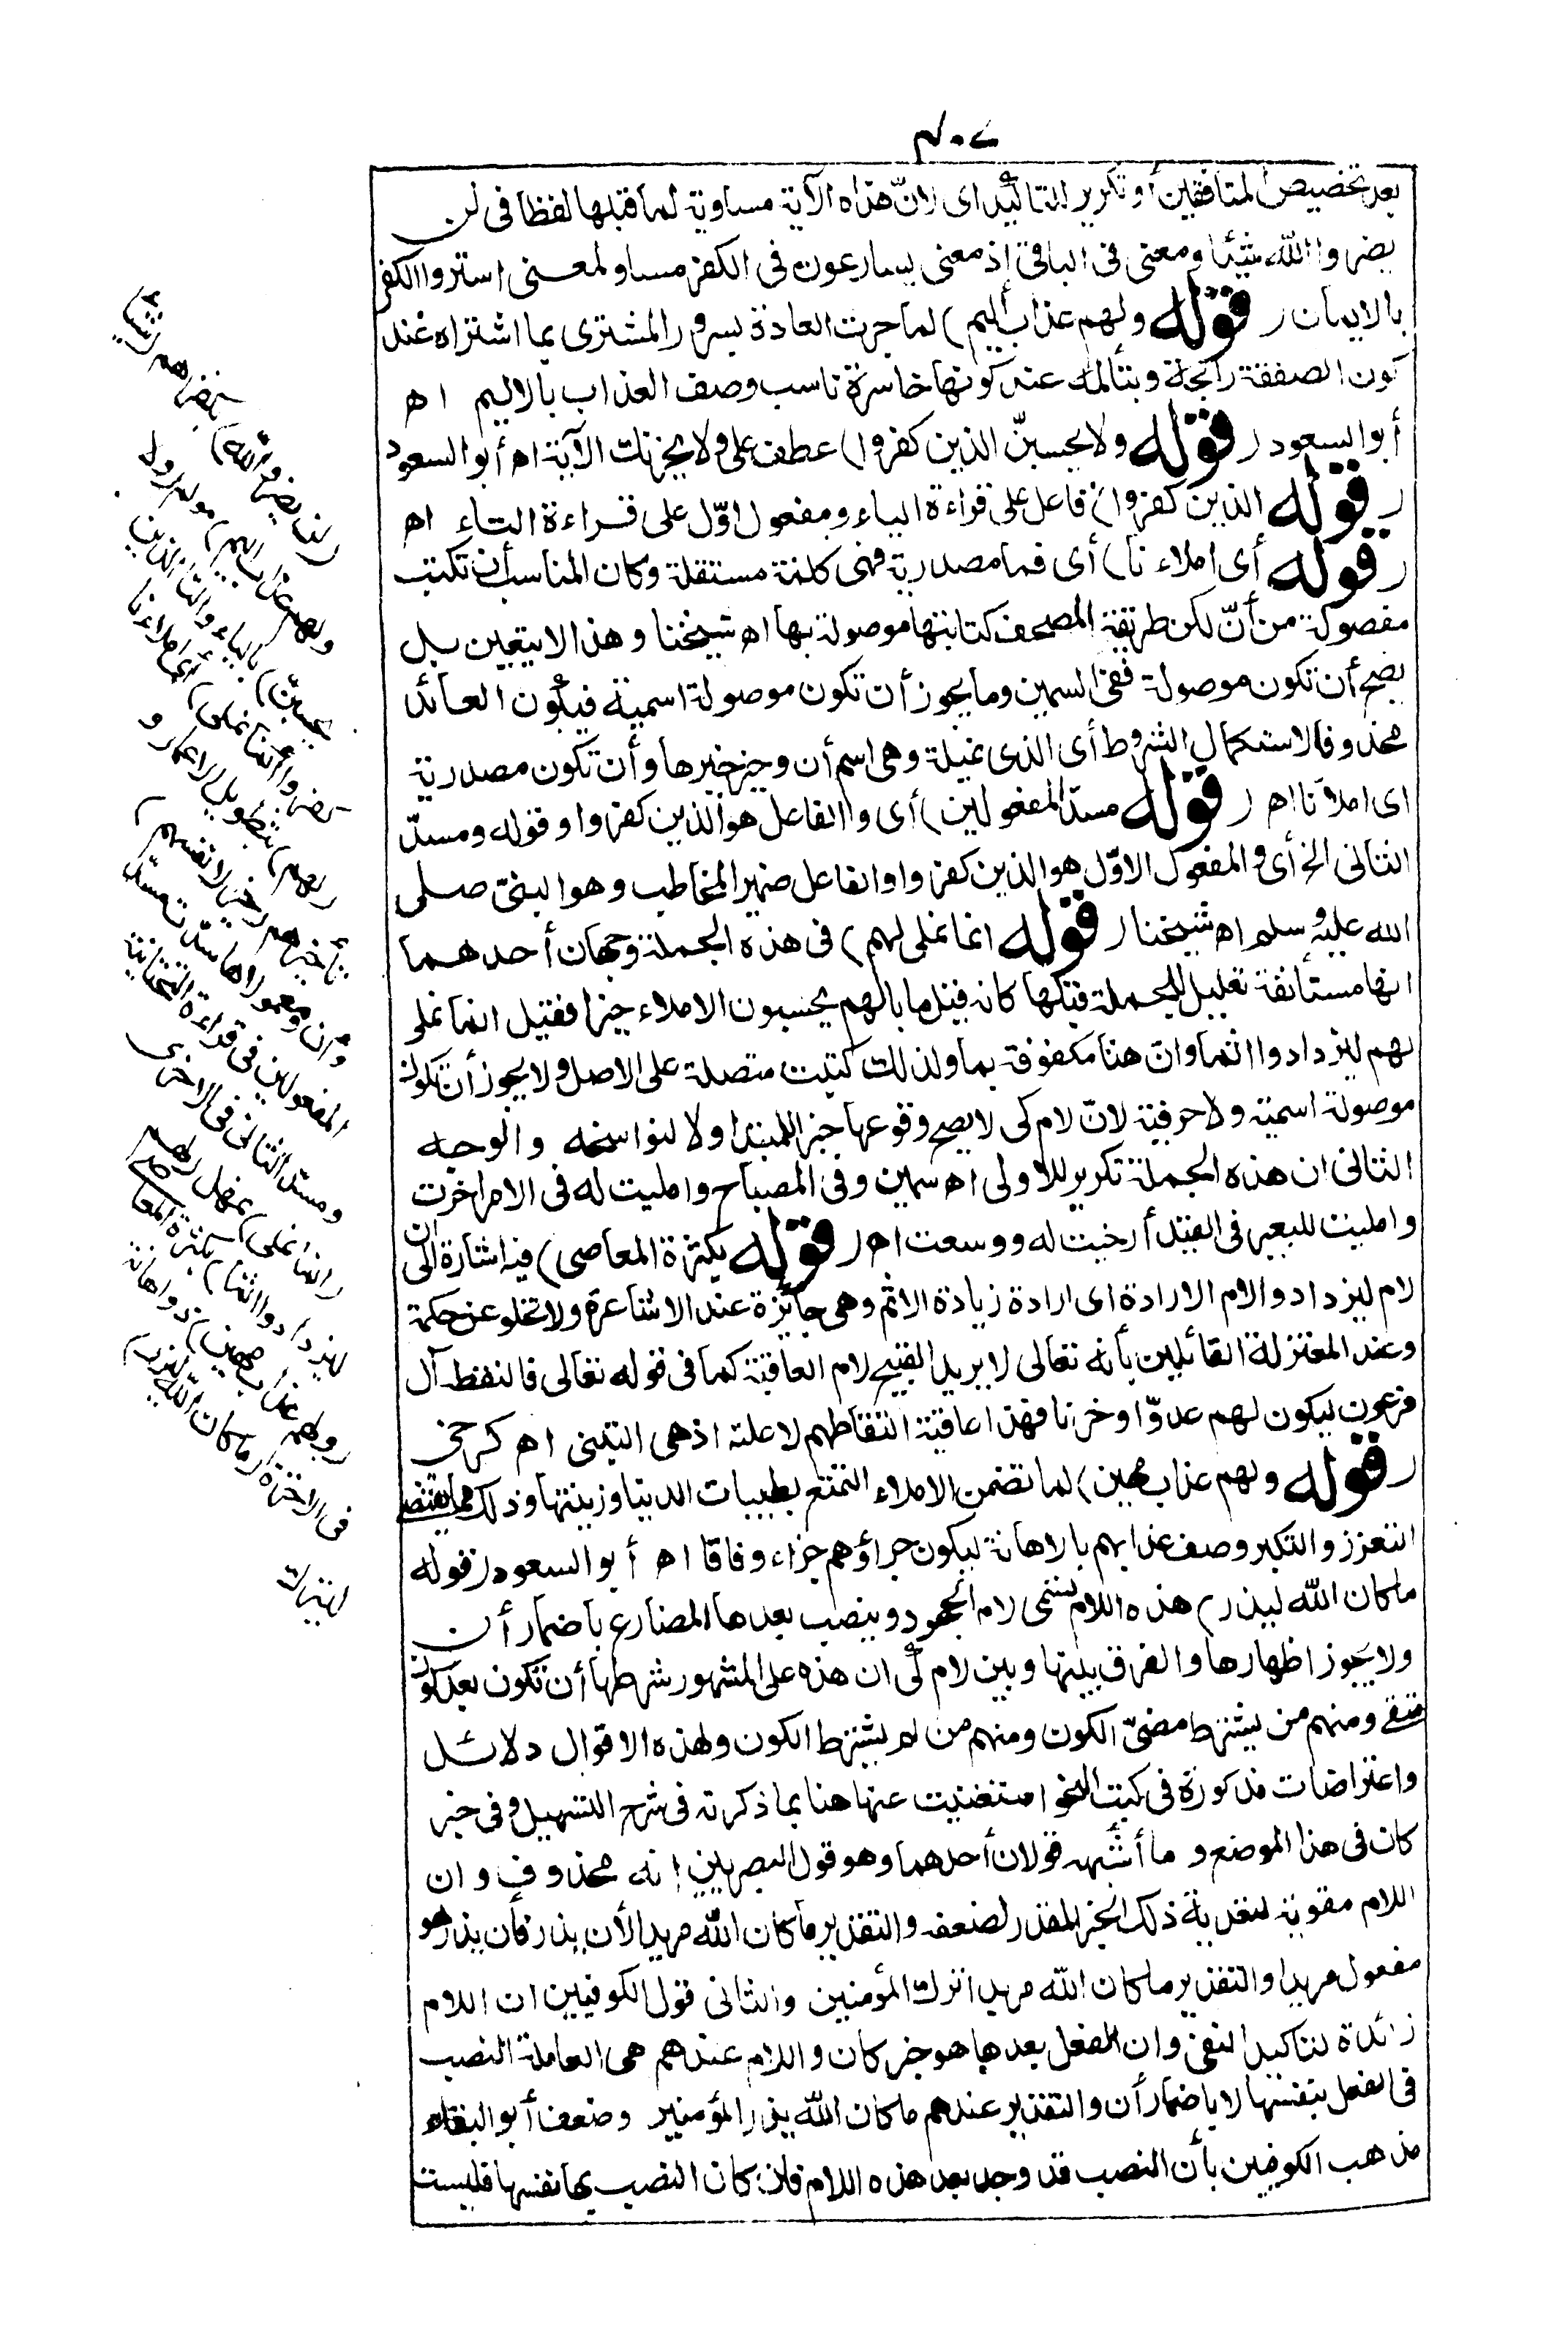 ٤٠٧
بعد تخصيص المنافقين أو تكرير للتاكيد اى لانّ هذه الآية مساوية لما قبلها لفظا فى لن
يضروا الله شيئا ومعنى فى الباقى إذ معنى يسارعون فى الكفر مساو لمعنى اشتروا الكفر
بالايمان ( قوله ولهم عذاب أليم ) لما جرت العادة بسرور المشترى بما اشتراه عند
كون الصفقة رابحة وبتألمه عند كونها خاسرة ناسب وصف العذاب بالاليم اه
أبو السعود ( قوله ولا يحسبنّ الذين كفروا ) عطف على ولا يحزنك الآية اه أبو السعود
( قوله الذين كفروا ) فاعل على قراءة الياء ومفعول اوّل على قراءة التاء اه
( قوله أى املاءنا ) أى فما مصدرية فهى كلمة مستقلة وكان المناسب أن تكتب
مفصولة من أنّ لكن طريقة المصحف كتابتها موصولة بها اه شيخنا وهذا لا يتعين بل
يصح أن تكون موصولة ففى السمين وما يجوز أن تكون موصولة اسمية فيكون العائد
محذوفا لاستكمال الشروط أى الذى نمليه وهى اسم أن وخير خبرها وأن تكون مصدرية
اى املانا اه ( قوله مسدّ المفعولين ) أى والفاعل هو الذين كفروا وقوله ومسدّ
الثانى الخ أى والمفعول الاوّل هو الذين كفروا والفاعل ضمير المخاطب وهو النبىّ صلى
الله عليه وسلم اه شيخنا ( قوله انما نملى لهم ) فى هذه الجملة وجهان أحدهما
انها مستأنفة تعليل للجملة قبلها كانه قيل ما بالهم يحسبون الاملاء خيرا فقيل انما نملى
لهم ليزدادوا اثما وان هنا مكفوفة بما ولذلك كتبت متصلة على الاصل ولا يجوز أن تكون
موصولة اسمية ولا حرفية لانّ لام كى لا يصح وقوعها خبرا للمبتدا ولا لنواسخه والوجه
الثانى ان هذه الجملة تكرير للاولى اه سمين وفى المصباح وامليت له فى الامر اخرت
وامليت للبعير فى القيد أرخيت له ووسعت اه ( قوله بكثرة المعاصى ) فيه اشارة الى ان
لام ليزدادوا لام الارادة اى ارادة زيادة الاثم وهى جائزة عند الاشاعرة ولا تخلو عن حكمة
وعند المعتزلة القائلين بأنه تعالى لا يريد القبيح لام العاقبة كما فى قوله تعالى فالتقطه آل
فرعون ليكون لهم عدوّا وحزنا فهذا عاقبة التقاطهم لا علته اذ هى التبنى اه كرخى
( قوله ولهم عذاب مهين ) لما تضمن الاملاء التمتع بطيبات الدنيا وزينتها وذلك مما يقتضى
التعزز والتكبر وصف عذابهم بالاهانة ليكون جزاؤهم جزاء وفاقا اه أبو السعود ( قوله
ما كان الله ليذر ) هذه اللام تسمى لام الجحود وينصب بعدها المضارع باضمار أن
ولا يجوز اظهارها والفرق بينها وبين لام كى ان هذه على المشهور شرطها أن تكون بعد كون
منفى ومنهم من يشترط مضىّ الكون ومنهم من لم يشترط الكون ولهذه الاقوال دلائل
واعتراضات مذكورة فى كتب النحو استغنيت عنها هنا بما ذكرته فى شرح التسهيل وفى خبر
كان فى هذا الموضع وما أشبهه قولان أحدهما وهو قول البصريين إنه محذوف وان
اللام مقوية لتعدية ذلك الخبر المقدر لضعفه والتقدير ما كان الله مريدا لأن يذر فأن يذر هو
مفعول مريدا والتقدير ما كان الله مريدا ترك المؤمنين والثانى قول الكوفيين ان اللام
زائدة لتاكيد النفى وان الفعل بعدها هو خبر كان واللام عندهم هى العاملة النصب
فى الفعل بنفسها لا باضمار أن والتقدير عندهم ما كان الله يذر المؤمنين وضعف أبو البقاء
مذهب الكوفيين بأن النصب قد وجد بعد هذه اللام فان كان النصب بها نفسها فليست
( لن يضروا الله ) بكفرهم ( شيئا
ولهم عذاب أليم ) مولم ( ولا
يحسبن ) بالياء والتاء ( الذين
كفروا أنما نملى ) أى املاءنا
( لهم ) بتطويل الاعمار و
تأخيرهم ( خير لانفسهم )
وأن ومعمولاها سدّت مسدّ
المفعولين فى قراءة التحتانية
ومسدّ الثانى فى الاخرى
( انما نملى ) نمهل ( لهم
ليزدادوا اثما ) بكثرة المعاصى
( ولهم عذاب مهين ) ذو اهانة
فى الاخرة ( ما كان الله ليذر )
ليترك